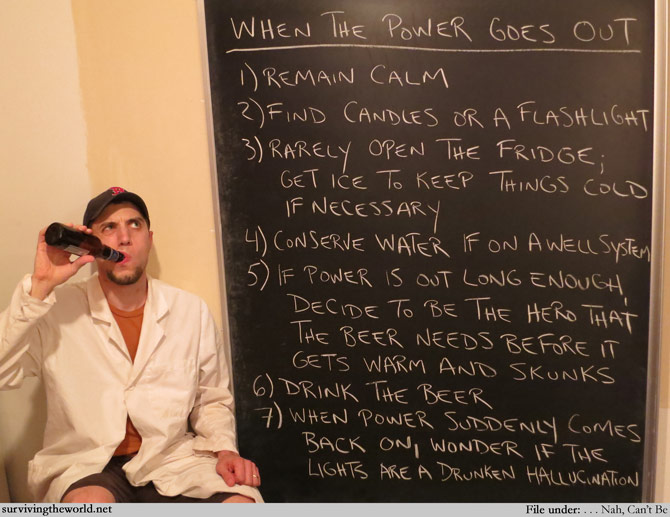 WHEN THE POWER GOES OUT
1) REMAIN CALM
2) FIND CANDLES OR A FLASHLIGHT
3) RARELY OPEN THE FRIDGE;
GET ICE TO KEEP THINGS COLD
IF NECESSARY
4) CONSERVE WATER IF ON A WELL SYSTEM
5) IF POWER IS OUT LONG ENOUGH,
DECIDE TO BE THE HERO THAT
THE BEER NEEDS BEFORE IT
GETS WARM AND SKUNKS
6) DRINK THE BEER
7) WHEN POWER SUDDENLY COMES
BACK ON, WONDER IF THE
LIGHTS ARE A DRUNKEN HALLUCINATION
survivingtheworld.net
File under: . . . Nah, Can't Be